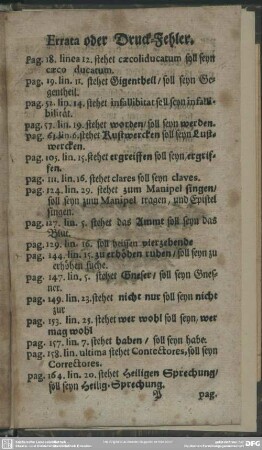 Errata oder Druck-Fehler.
Pag. 18. linea 12. stehet cæcoliducatum soll seyn
cæco ducatum.
pag. 19. lin. 11. stehet Gigentheil / soll seyn Ge-
gentheil.
pag. 52. lin. 14. stehet infallibitat soll seyn infalli-
bilität.
pag. 57. lin. 19. stehet worden / soll seyn werden.
pag. 63. lin. 6. stehet Kustwercken soll seyn Lust-
wercken.
pag. 105. lin. 15. stehet ergreiffen soll seyn ergrif-
fen.
pag. 111. lin. 16. stehet clares soll seyn claves.
pag. 124. lin. 29. stehet zum Manipel singen /
soll seyn zum Manipel tragen, und Epistel
singen.
pag. 127. lin. 5. stehet das Ammt soll seyn das
Blut.
pag. 129. lin. 16. soll heissen vierzehende
pag. 144. lin. 15. zu erhöhen ruhen / soll seyn zu
erhöhen suche.
pag. 147. lin. 5. stehet Gneser / soll seyn Gnes-
ner.
pag. 149. lin. 23. stehet nicht nur soll seyn nicht
zur
pag. 153. lin. 25. stehet wer wohl soll seyn, wer
mag wohl
pag. 157. lin. 7. stehet haben / soll seyn habe.
pag. 158. lin. ultima stehet Contectores, soll seyn
Correctores.
pag. 164. lin. 20. stehet Heiligen Sprechung /
soll seyn Heilig-Sprechung.
pag.